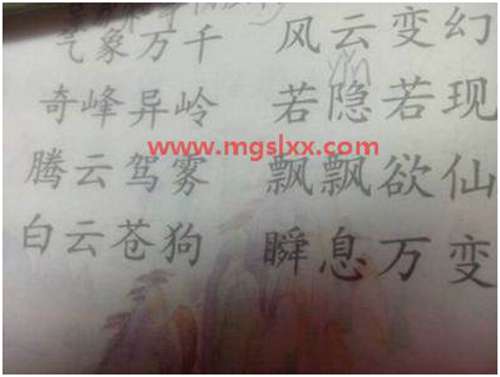 气象万千 风云变幻
奇峰异岭 若隐若现
www.mgslxx.com
腾云驾雾 飘飘欲仙
白云苍狗 瞬息万变